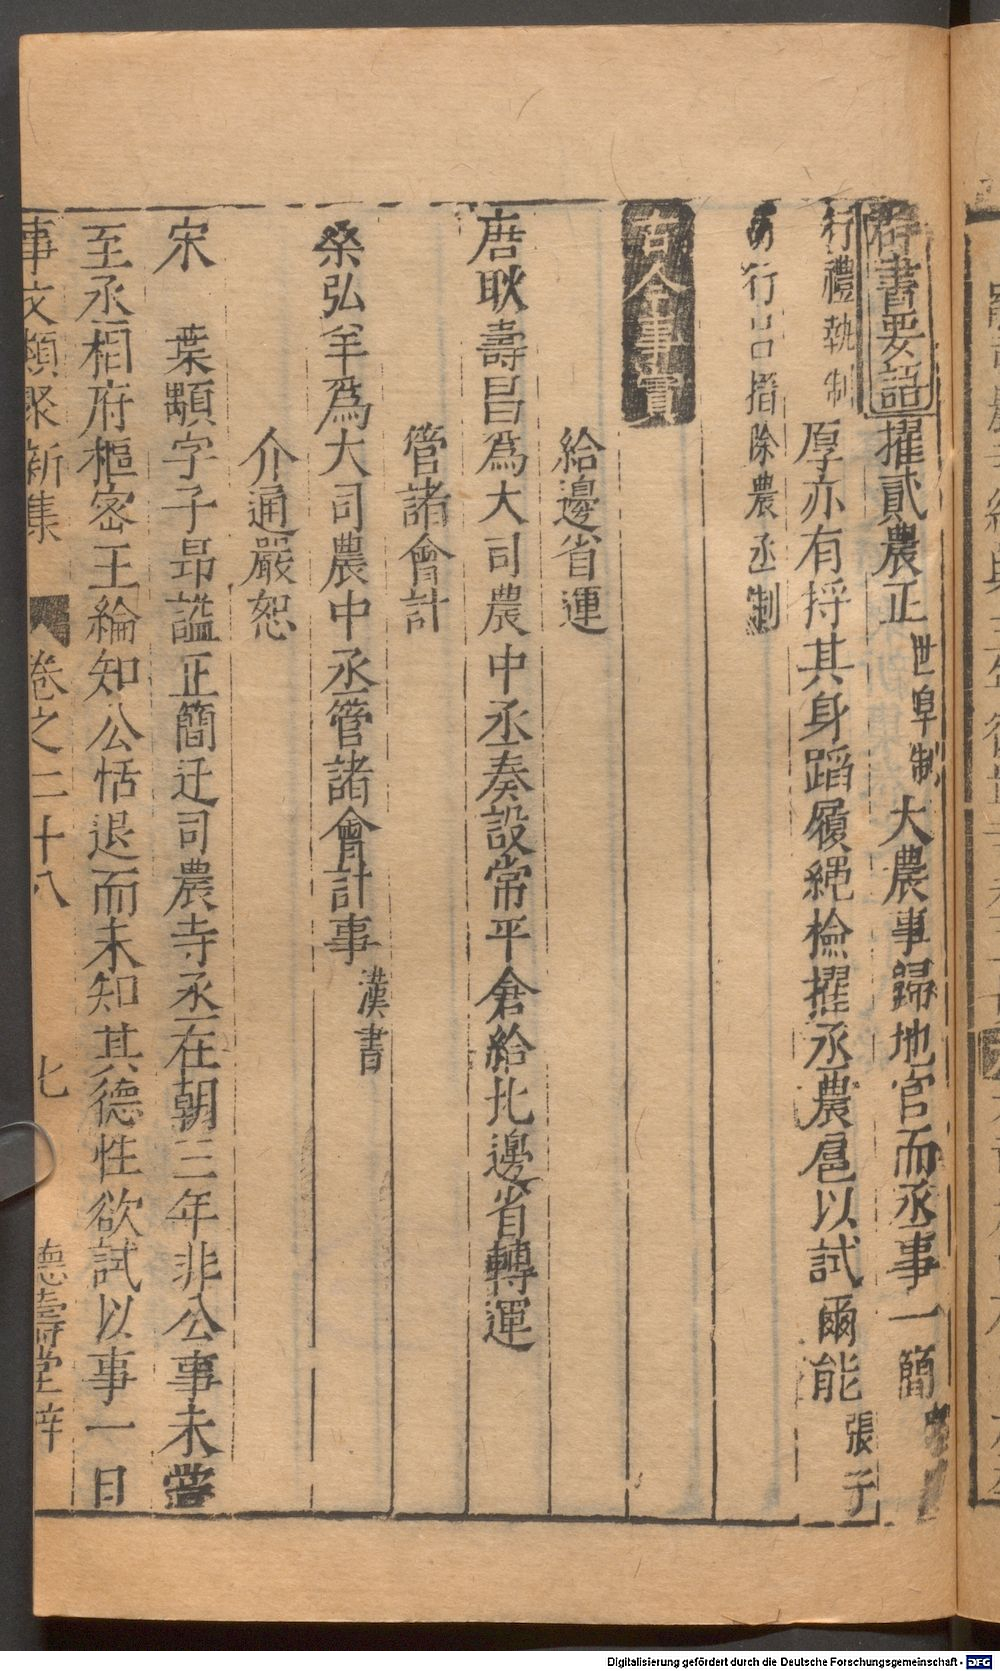 群書要語 擢貳農正 世阜制 大農事歸地官而丞事一簡
厚亦有捋其身蹈履繩檢擢丞農扈以試爾能 張子
行禮執制
行吕揩除農丞制
古今事實
給邊省運
唐耿壽昌爲大司農中丞奏設常平倉給北邊省轉運
管諸會計
桑弘羊爲大司農中丞管諸會計事 漢書
介通嚴恕
宋 葉顒字子昻謚正簡迁司農寺丞在朝三年非公事未嘗
至丞相府樞密王綸知公恬退而未知其德性欲試以事一日
事文類聚新集 卷之二十八 七 德壽堂梓
Digitalisierung gefördert durch die Deutsche Forschungsgemeinschaft - DFG